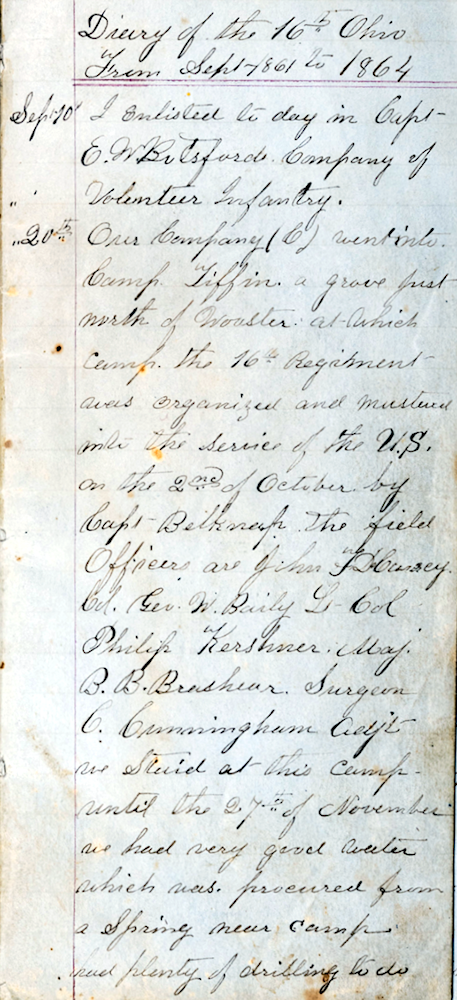 Diary of the 16th Ohio
From Sept 1861 to 1864
Sept 10th I Enlisted to day in Capt
E. W. Botsfords Company of
" " Volenteer Infantry.
" 20th Our Company (C) went into
Camp Tiffin. a grove just
north of Wooster. at which
camp. the 16th Regiment
was organized and mustered
into the service of the U.S.
on the 2nd of October by
Capt Belknap the field
Officers are John F DCourcy.
Col. Geo. W. Baily Lt Col
Philip Kershner. Maj.
B. B. Brashear. Surgeon
C. Cunningham Adjt
we Staid at this camp
until the 27th of November
we had very good water
which was. procured from
a Spring near camp.
had plenty of drilling to do